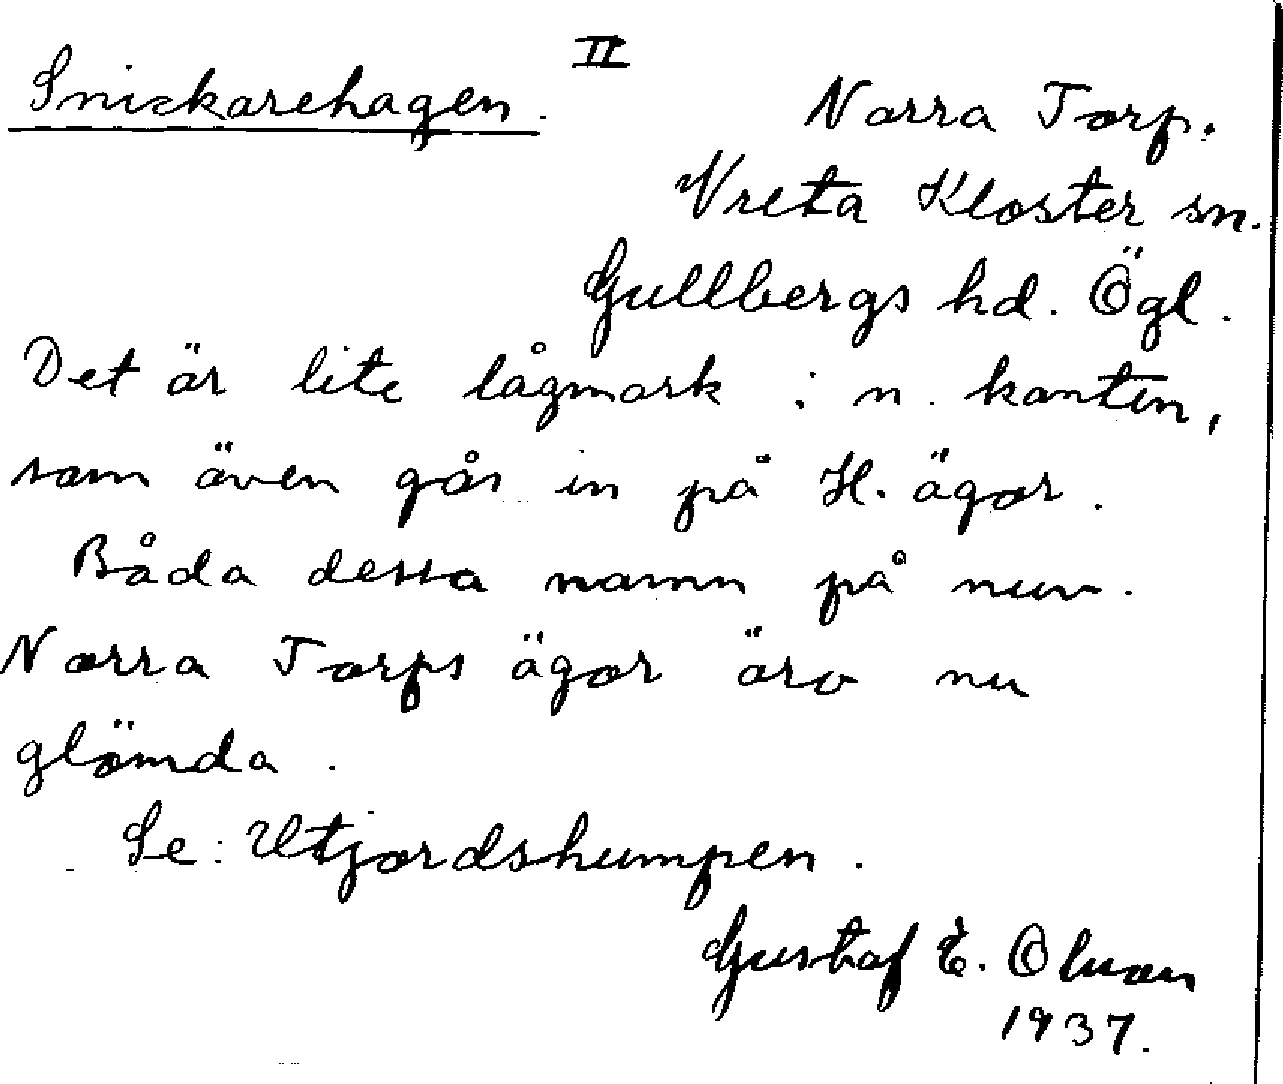 II
Snickarehagen.
Norra Torp.
Vreta Kloster sn.
Gullbergs hd. Ögl.
Det är lite lågmark i n. kanten,
som även går in på H. ägor.
Båda dessa namn på nuv.
Norra Torps ägor äro nu
glömda.
Se: Utjordshumpen.
Gustaf E. Olson
1937.